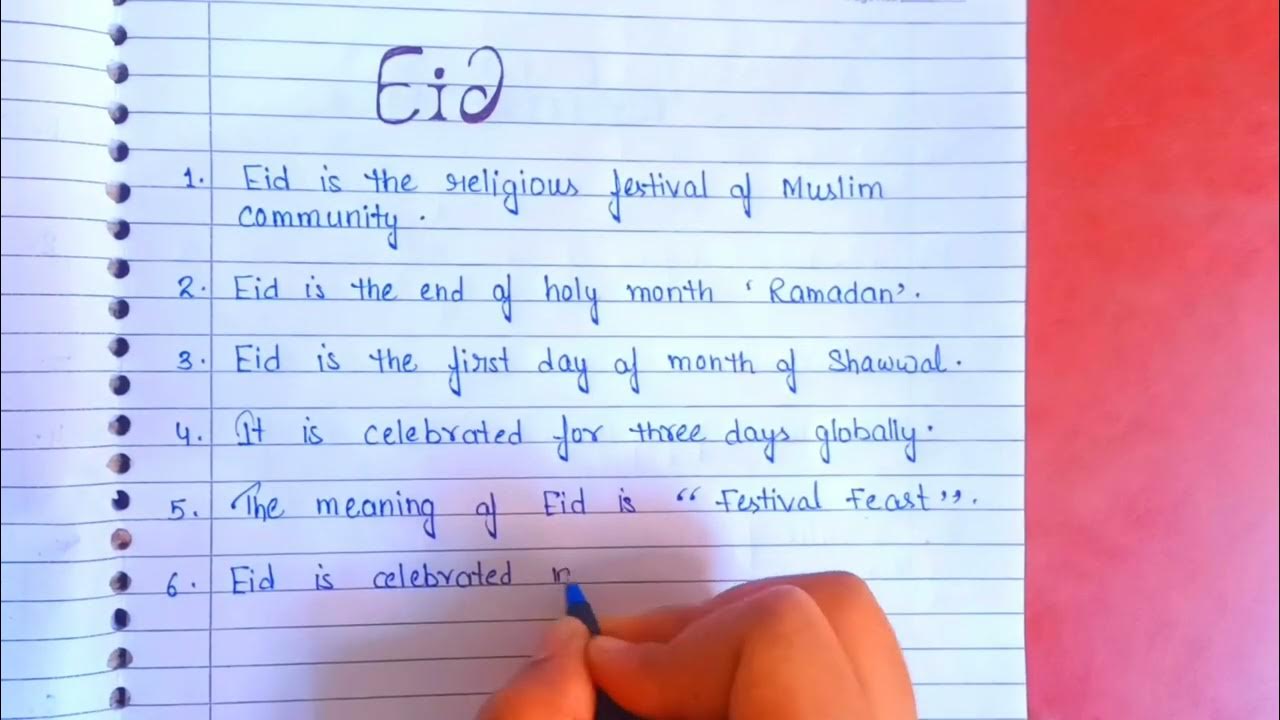 Eid
1. Eid is the religious festival of Muslim
community.
2. Eid is the end of holy month 'Ramadan'.
3. Eid is the first day of month of Shawwal.
4. It is celebrated for three days globally.
5. The meaning of Eid is "Festival Feast".
6. Eid is celebrated in